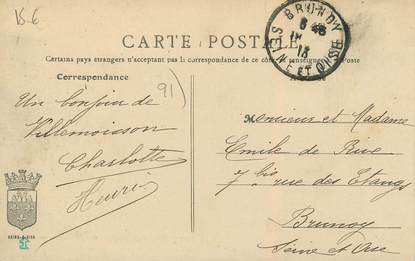 15-6
CARTE POSTALE
Certains pays étrangers n'acceptant pas la correspondance de ce côté, se renseigner à la Poste
Correspondance
91)
Un bonjour de
Villemoisson
Charlotte
Henri
BRUNOY
SEINE ET OISE
6
13
Monsieur et Madame
Emile de Rive
7 bis rue des Etangs
Brunoy
Seine et Oise
SEINE-&-OISE